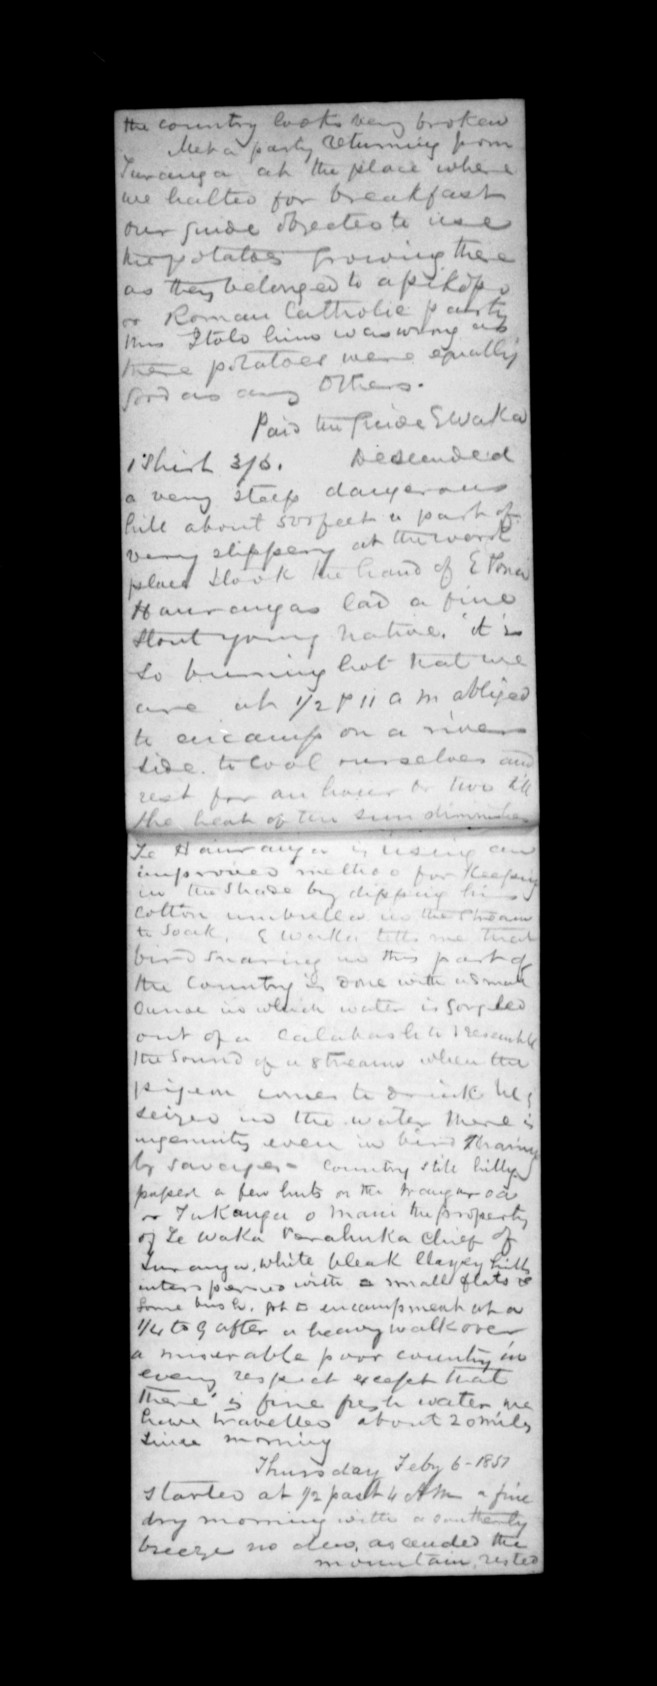 the country looks very broken
Met a party returning from
Turanga at the place where
we halted for breakfast
our guide objected to use
the potatoes growing there
as they belonged to a pikopo
or Roman Catholic party
this I told him was wrong as
these potatoes were equally
good as any others.
Paid the Guide E Waka
1 Shirt 3/6. Descended
a very steep dangerous
hill about 500 feet a part of
very slippery at the worst
place I took the hand of E
Haurangas lad a fine
stout young native. it is
so burning hot that we
are at 1/2 P 11 a m obliged
to encamp on a rivers
side. to cool ourselves and
rest for an hour or two till
the heat of the sun diminishes
Te Hauranga is using an
improved method for keeping
in the shade by dipping his
cotton umbrella in the stream
to soak. E Waka tells me that
bird snaring in this part of
the country is done with a small
canoe in which water is gorgled
out of a calabash to resemble
the sound of a stream when the
pigeon comes to drink he is
seized in the water there is
ingenuity even in bird
by savages - country still hilly
passed a few huts on the
or Tukanga o Maui the property
of Te Waka Perahuka chief of
Turanga, white bleak clayey hills
interspersed with small flats &
some bush. got to encampment at a
1/4 to 9 after a heavy walk over
a miserable poor country in
every respect except that
there is fine fresh water we
have travelled about 20 miles
since morning
Thursday Feby 6 - 1851
started at 1/2 past 4 AM a fine
dry morning with a southerly
breeze no dew, ascended the
mountain, rested